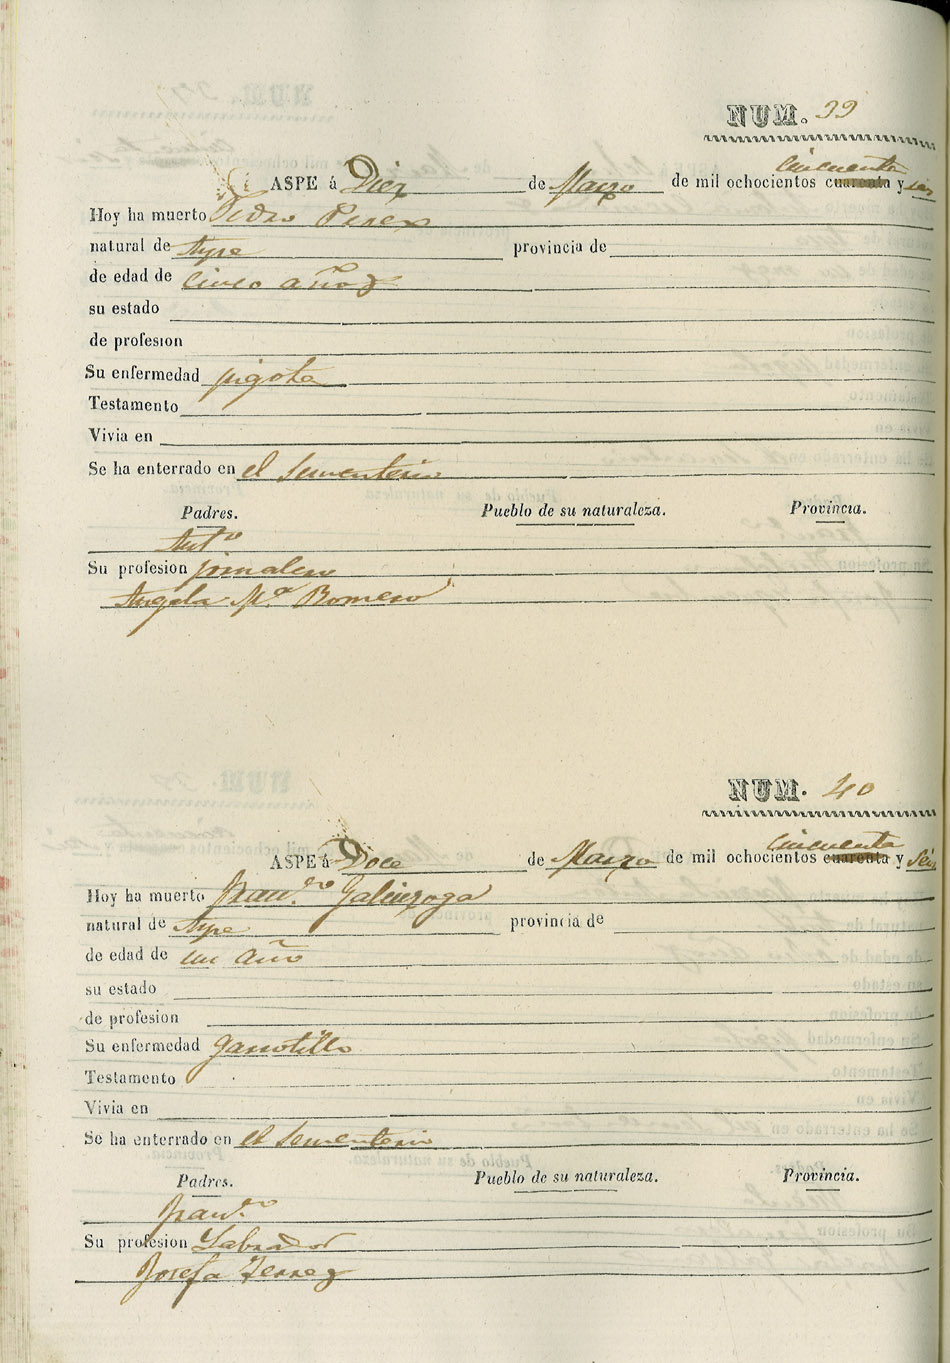 NUM. 39
cincuenta
ASPE á Diez de Marzo de mil ochocientos cuarenta y seis
Hoy ha muerto Pedro Perez
natural de Aspe provincia de
de edad de cinco años
su estado
de profesion
Su enfermedad pigota
Testamento
Vivia en
Se ha enterrado en el sementerio
Padres. Pueblo de su naturaleza. Provincia.
Antº
Su profesion jornalero
Angela Mª Romero
NUM. 40
cincuenta
ASPE á Doce de Marzo de mil ochocientos cuarenta y seis
Hoy ha muerto Franco Galinzoga
natural de Aspe provincia de
de edad de un año
su estado
de profesion
Su enfermedad garrotillo
Testamento
Vivia en
Se ha enterrado en el sementerio
Padres. Pueblo de su naturaleza. Provincia.
Franco
Su profesion Labrador
Josefa